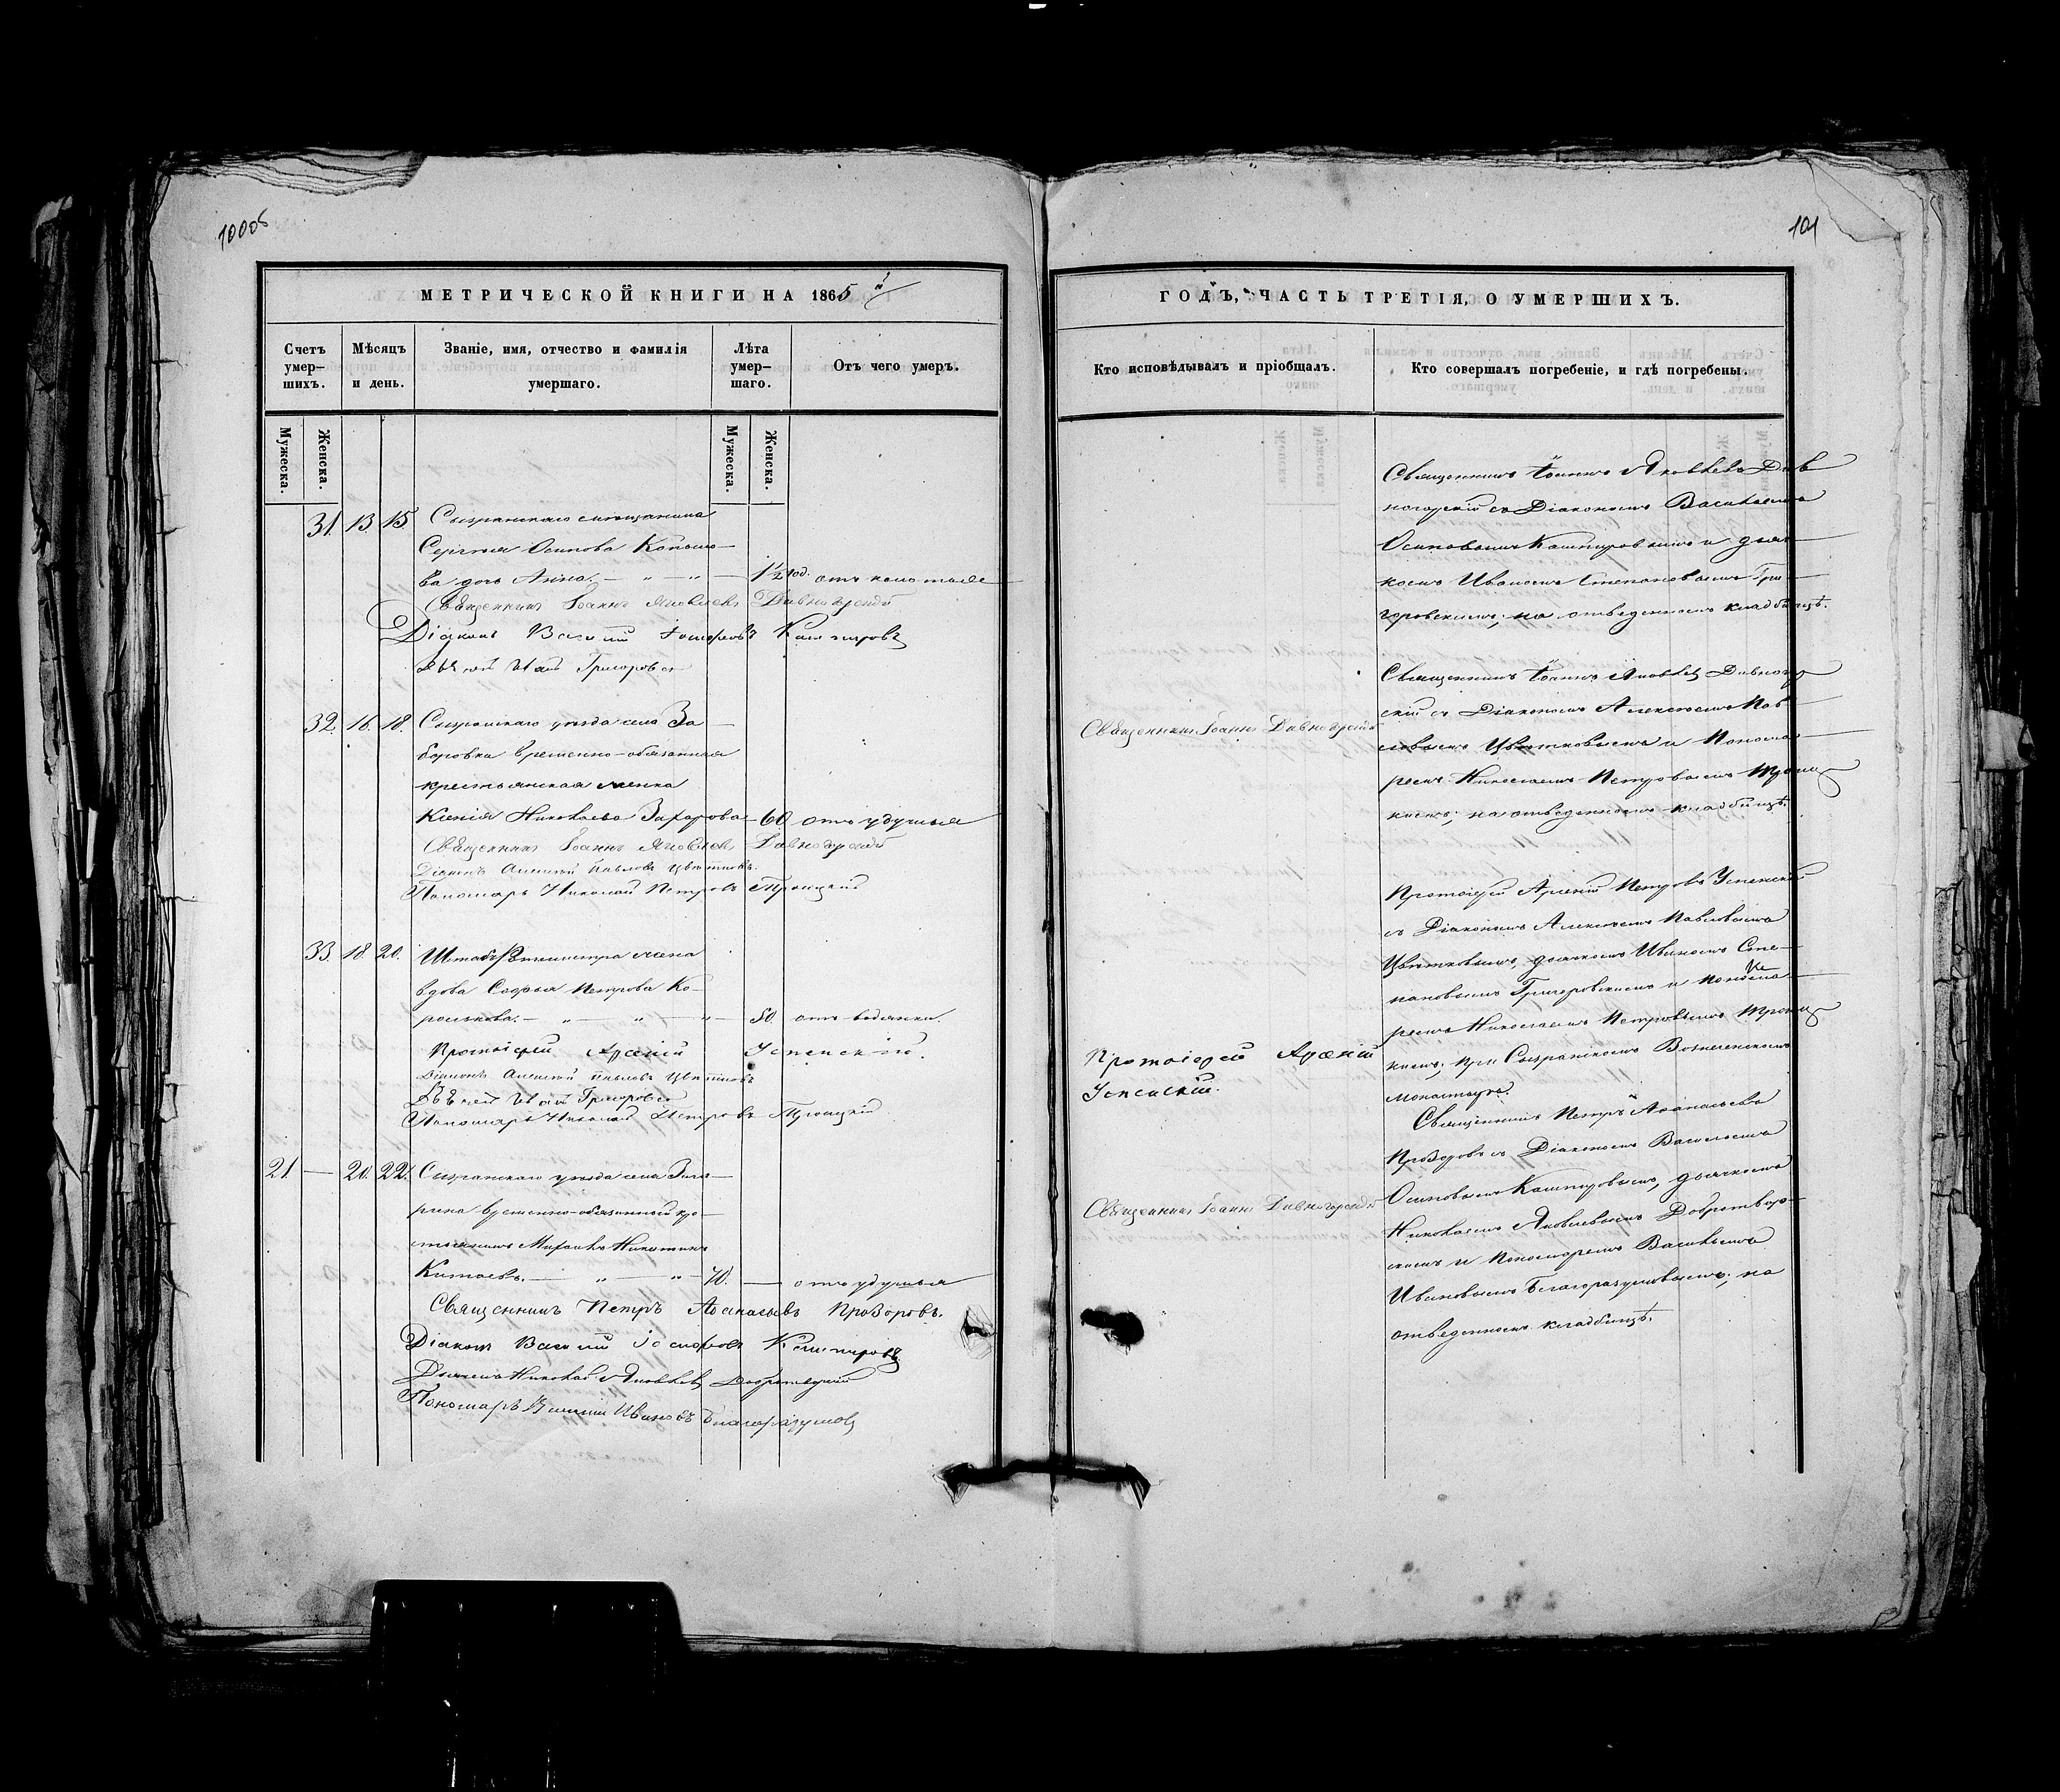 100об
101
МЕТРИЧЕСКОЙ КНИГИ НА 1865й
ГОДЪ, ЧАСТЬ ТРЕТІЯ, О УМЕРШИХЪ.
Счетъ умер-шихъ.
Мѣсяцъ и день.
Званіе, имя, отчество и фамилія умершаго.
Лѣта умер-шаго.
Отъ чего умеръ.
Кто исповѣдывалъ и пріобщалъ.
Кто совершалъ погребеніе, и гдѣ погребены.
Мужеска.
Женска.
Мужеска.
Женска.
31. 13. 15. Сызранскаго мѣщанина
Сергѣя Осипова
ва дочь Анна. 1½ год.
Священникъ Іоаннъ Яковлевъ Дивногорскій
Діаконъ Василій Іосифовъ Кашпировъ
Дьячекъ Иванъ Григоровскій
Священникъ Іоаннъ Яковлевъ Див
ногорскій съ Діакономъ Василіемъ
Осиповымъ Кашпировымъ и дьяч
комъ Иваномъ Степановымъ Гри
горовскимъ, на отведенномъ кладбищѣ.
32. 16. 18. Сызранскаго уѣзда села За
боровки временно-обязанная
крестьянская женка
Ксенія Николаева Захарова 60 отъ удушья
Священникъ Іоаннъ Яковлевъ Дивногорскій
Діаконъ Алексѣй Павловъ Цвѣтковъ.
Пономарь Николай Петровъ Троицкій
Священникъ Іоаннъ Дивногорскій
Священникъ Іоаннъ Яковлевъ Дивногор
скій съ Діакономъ Алексѣемъ Пав
ловымъ Цвѣтковымъ и Понома
ремъ Николаемъ Петровымъ Троиц
кимъ, на отведенномъ кладбищѣ.
33. 18. 20. Штабъ-Ротмистра жена
вдова Софья Петрова Ко
ролькова. 50. отъ водянки.
Протоіерей Арсеній Успенскій.
Діаконъ Алексѣй Павловъ Цвѣтковъ
Дьячекъ Иванъ Григоровскій
Пономарь Николай Петровъ Троицкій
Протоіерей Арсеній
Успенскій.
Протоіерей Арсеній Петровъ Успенскій
съ Діакономъ Алексѣемъ Павловымъ
Цвѣтковымъ, дьячкомъ Иваномъ Сте
пановымъ Григоровскимъ и Понома
ремъ Николаемъ Петровымъ Троиц
кимъ, при Сызранскомъ Вознесенскомъ
монастырѣ.
21. — 20. 22. Сызранскаго уѣзда села
временно-обязанный кре
стьянинъ Михаилъ Никитинъ
Китаевъ. 70. — отъ удушья
Священникъ Петръ Аѳанасьевъ Прозоровъ.
Діаконъ Василій Іосифовъ Кашпировъ
Дьячекъ Николай Яковлевъ Добротворскій
Пономарь Василій Ивановъ Благоразумовъ
Священникъ Іоаннъ Дивногорскій
Священникъ Петръ Аѳанасьевъ
Прозоровъ съ Діакономъ Василіемъ
Осиповымъ Кашпировымъ, дьячкомъ
Николаемъ Яковлевымъ Добротвор
скимъ и Пономаремъ Василіемъ
Ивановымъ Благоразумовымъ, на
отведенномъ кладбищѣ.